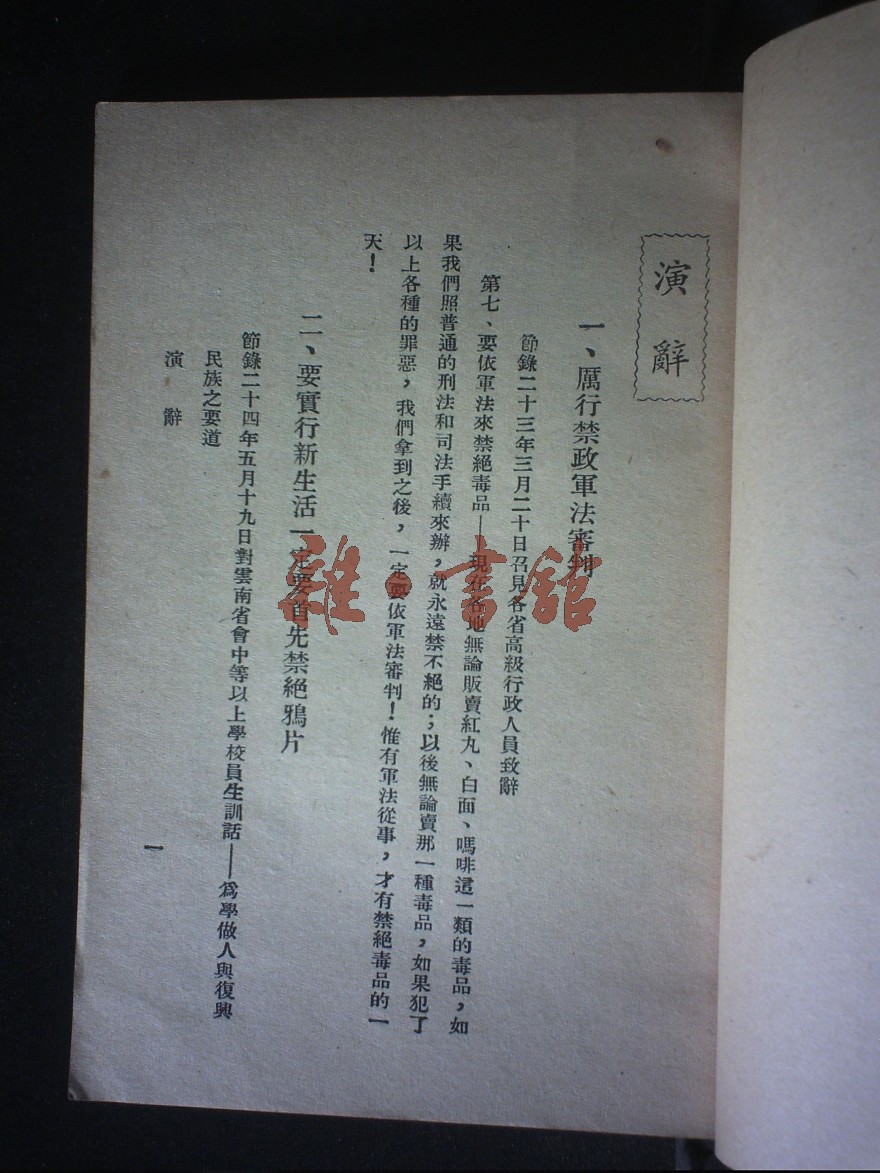 演辭
一、厲行禁政軍法審判
節錄二十三年三月二十日召見各省高級行政人員致辭
第七、要依軍法來禁絕毒品——現在各地無論販賣紅丸、白面、嗎啡這一類的毒品，如
果我們照普通的刑法和司法手續來辦，就永遠禁不絕的；以後無論賣那一種毒品，如果犯了
以上各種的罪惡，我們拿到之後，一定要依軍法審判！惟有軍法從事，才有禁絕毒品的一
天！
二、要實行新生活一定要首先禁絕鴉片
節錄二十四年五月十九日對雲南省會中等以上學校員生訓話——爲學做人與復興
民族之要道
演辭
一
雜·書館